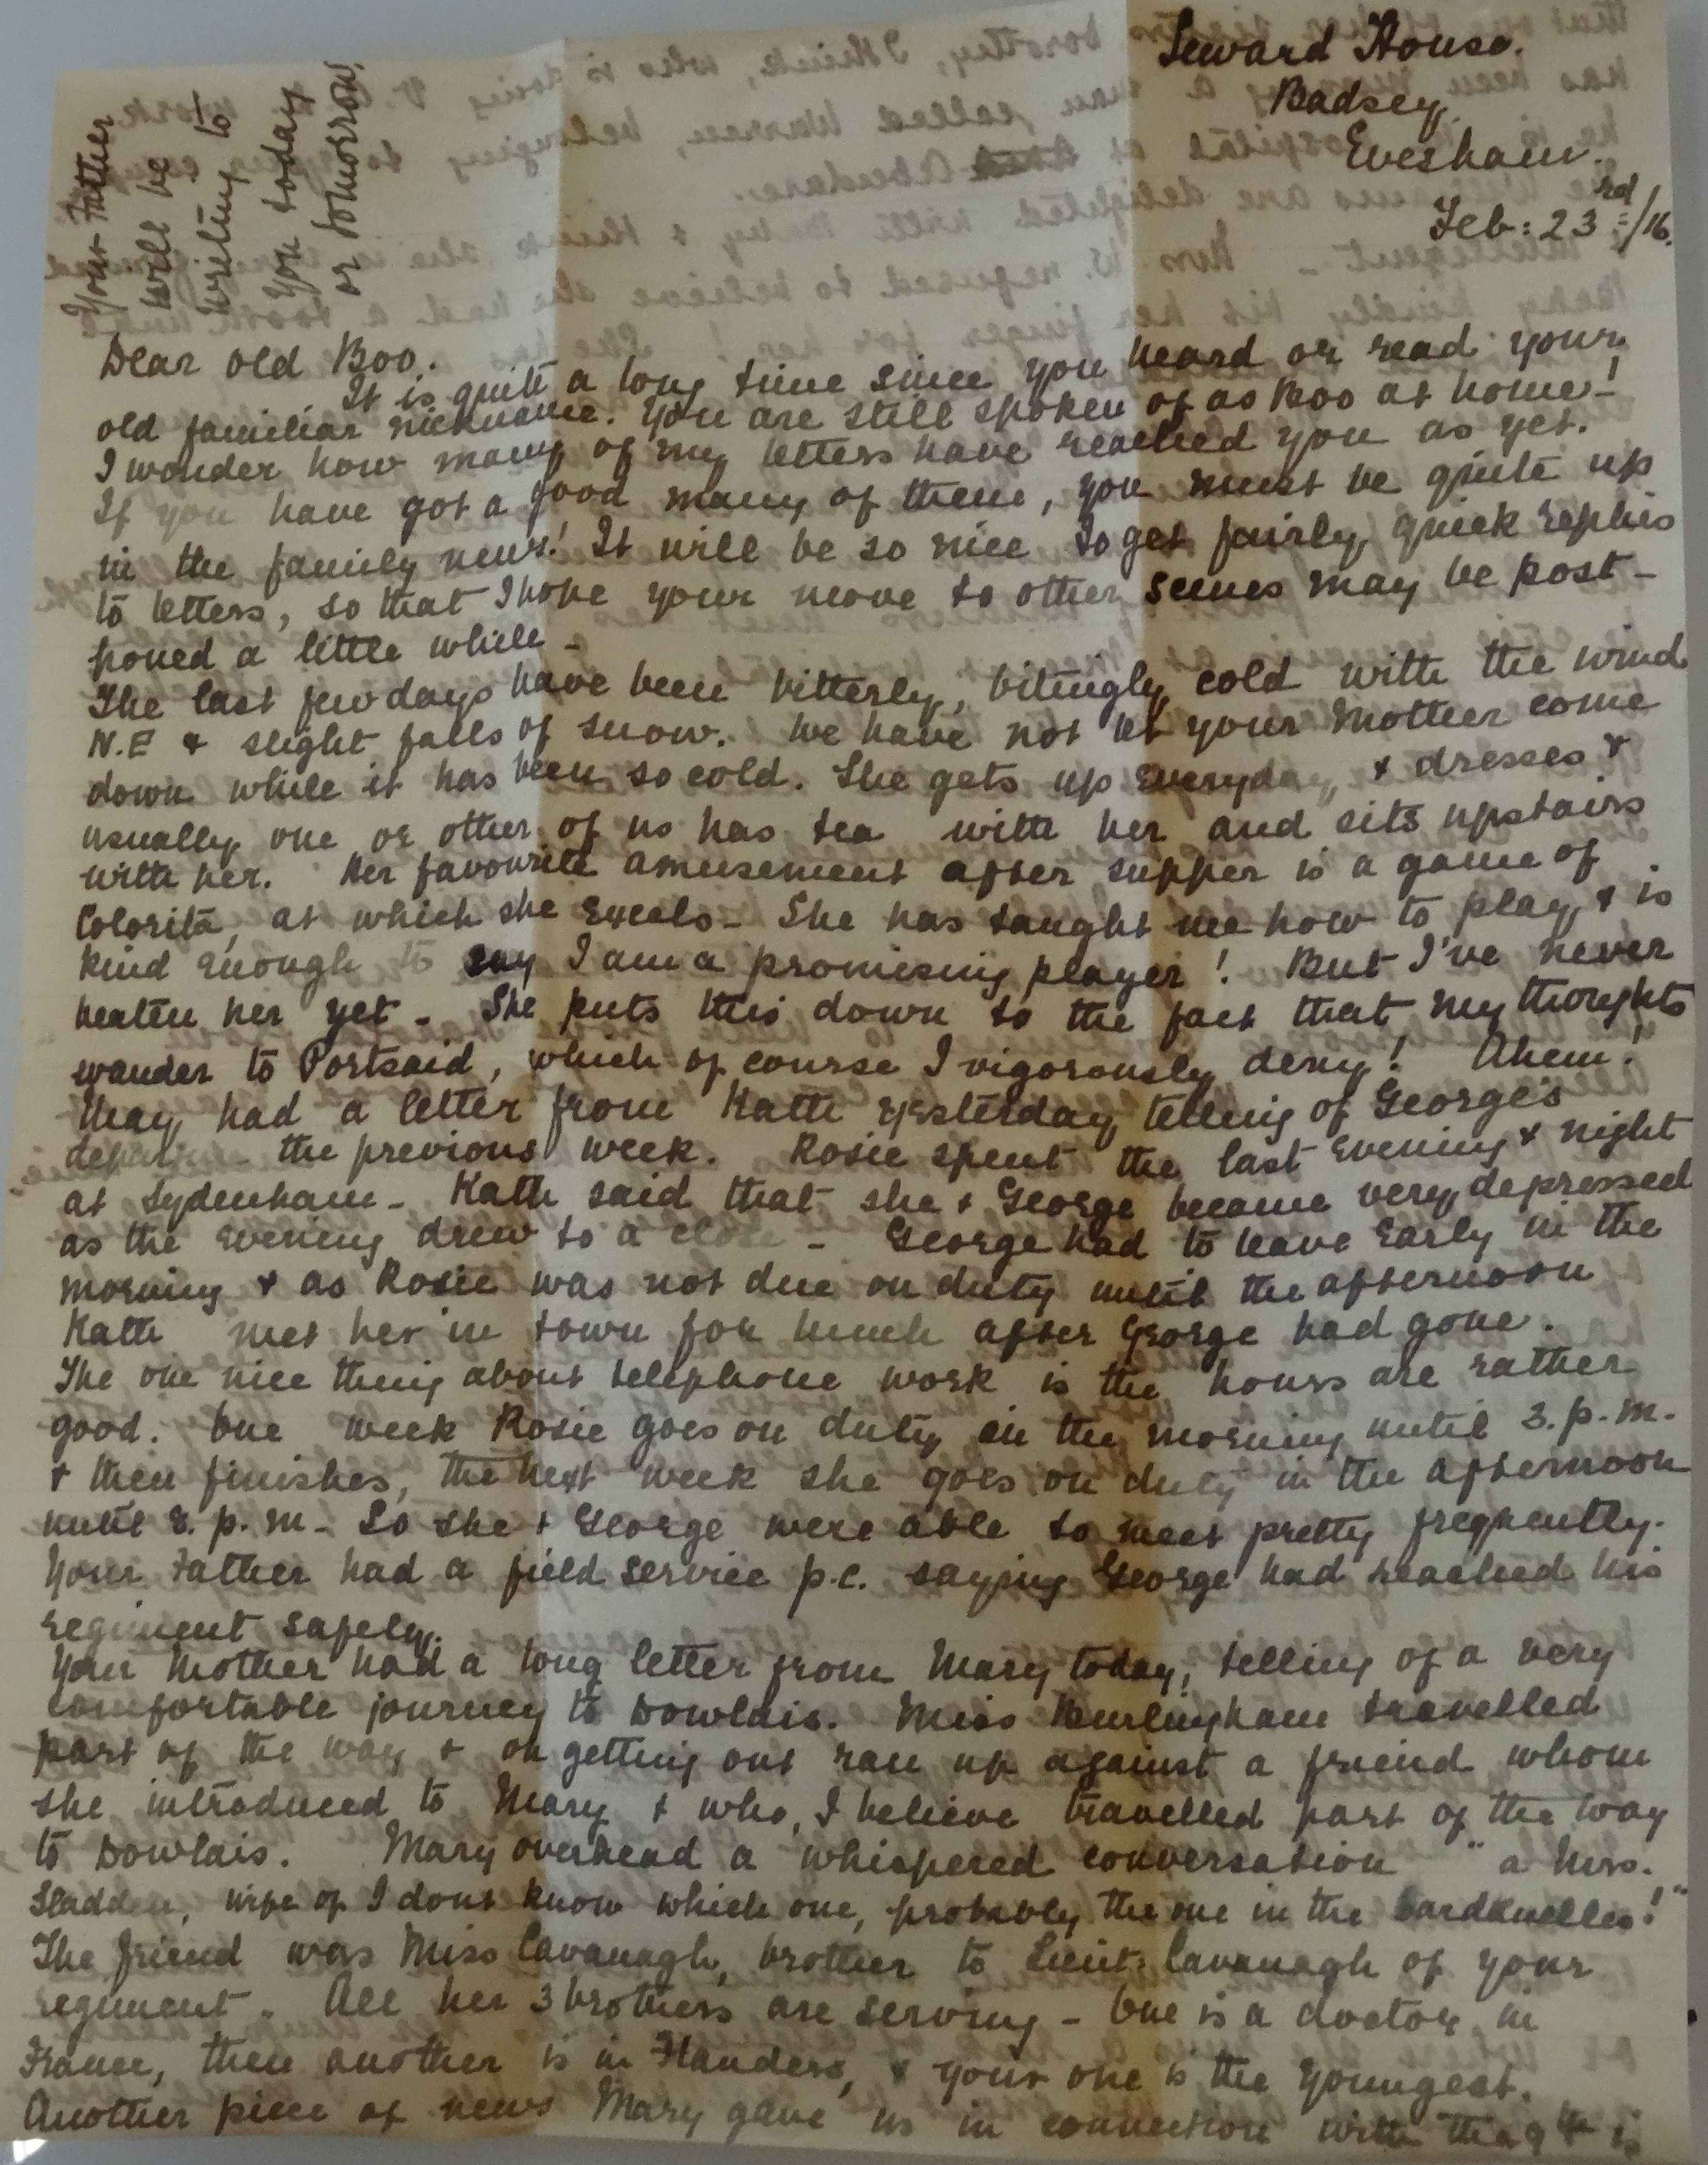 Seward House.
Badsey.
Evesham.
Feb: 23rd/16.
Your Father
will be
writing to
you today
or tomorrow.
Dear old Boo.
It is quite a long time since you heard or read your
old familiar nickname. You are still spoken of as Boo at home!
I wonder how many of my letters have reached you as yet.
If you have got a good many of them, you must be quite up
in the family news! It will be so nice to get fairly quick replies
to letters, so that I hope your move to other scenes may be post-
poned a little while -
The last few days have been bitterly, bitingly cold with the wind
N.E & slight falls of snow. We have not let your Mother come
down while it has been so cold. She gets up everyday & dresses &
usually one or other of us has tea with her and sits upstairs
with her. Her favourite amusement after supper is a game of
Colorito, at which she excels - She has taught me how to play & is
kind enough to say I am a promising player! But I've never
beaten her yet - She puts this down to the fact that my thoughts
wander to Portsaid, which of course I vigorously deny! Ahem!
May had a letter from Kath yesterday telling of George's
departure the previous week. Rosie spent the last evening & night
at Sydenham - Kath said that she & George became very depressed
as the evening drew to a close - George had to leave early in the
morning & as Rosie was not due on duty until the afternoon
Kath met her in town for lunch after George had gone.
The one nice thing about telephone work is the hours are rather
good. One week Rosie goes on duty in the morning until 3.p.m.
& then finishes, the next week she goes on duty in the afternoon
until 8.p.m - So she & George were able to meet pretty frequently.
Your Father had a field service p.c. saying George had reached his
regiment safely.
Your Mother had a long letter from Mary today, telling of a very
comfortable journey to Dowlais. Miss Burlingham travelled
part of the way & on getting out ran up against a friend whom
she introduced to Mary & who, I believe travelled part of the way
to Dowlais. Mary overhead a whispered conversation "a Mrs.
Sladden, wife of I dont know which one, probably the one in the Dardanelles!"
The friend was Miss Cavanagh, brother to Lieut: Cavanagh of your
regiment. All her 3 brothers are serving - One is a doctor in
France, then another is in Flanders, & your one is the youngest.
Another piece of news Mary gave us in connection with the 9th is